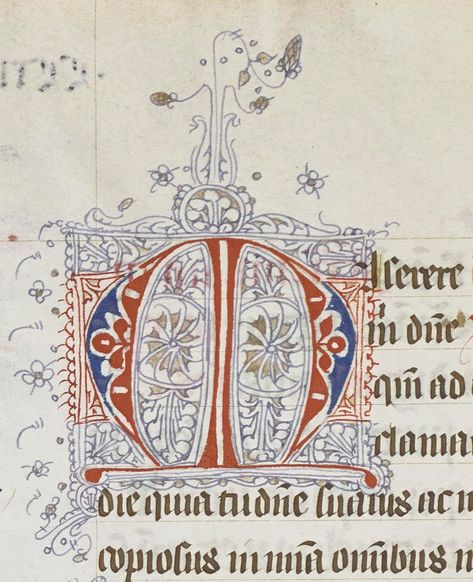 Miserere
mͥ dn̄e
qm̄ ad
clamau
die quia tu dn̄e suauis ac m
copiosus in mīa omībus